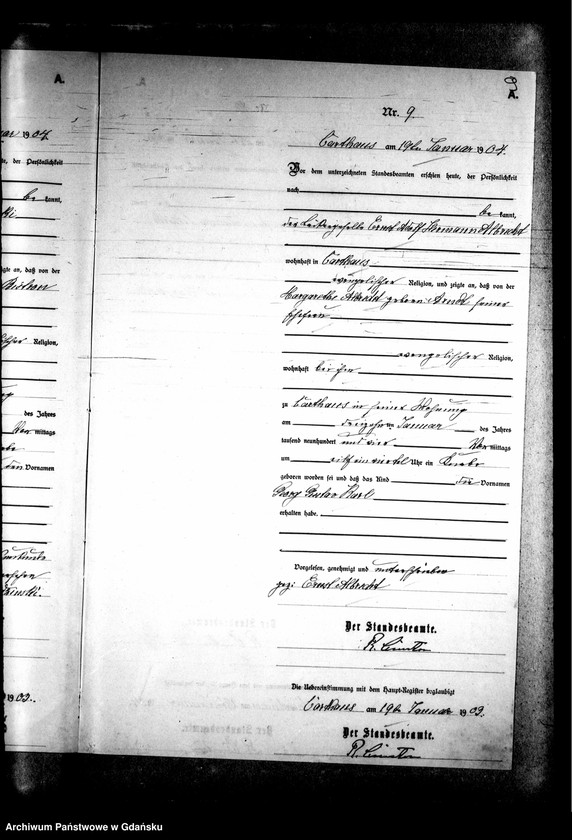 A.
ar 1904.
te, der Persönlichkeit
be kannt,
ki.
igte an, daß von der
Religion,
des Jahres
Vor mittags
den Vornamen
1903.
A.
Nr. 9.
Carthaus am 19ten Januar 1904.
Vor dem unterzeichneten Standesbeamten erschien heute, der Persönlichkeit
nach
be kannt,
der Ernst Adolf Hermann Albrecht
wohnhaft in Carthaus
evangelischer Religion, und zeigte an, daß von der
Margarethe Albrecht geborne Arndt seiner
Ehefrau
evangelischer Religion,
wohnhaft bei ihm
zu Carthaus in seiner Wohnung
am dreizehnten Januar des Jahres
tausend neunhundert und vier Vor mittags
um Uhr ein Knabe
geboren worden sei und daß das Kind die Vornamen
Georg Gustav Karl
erhalten habe.
Vorgelesen, genehmigt und unterschrieben
gez: Ernst Albrecht
Der Standesbeamte.
Die Uebereinstimmung mit dem Haupt-Register beglaubigt
Carthaus am 19ten Januar 1903.
Der Standesbeamte.
Archiwum Państwowe w Gdańsku